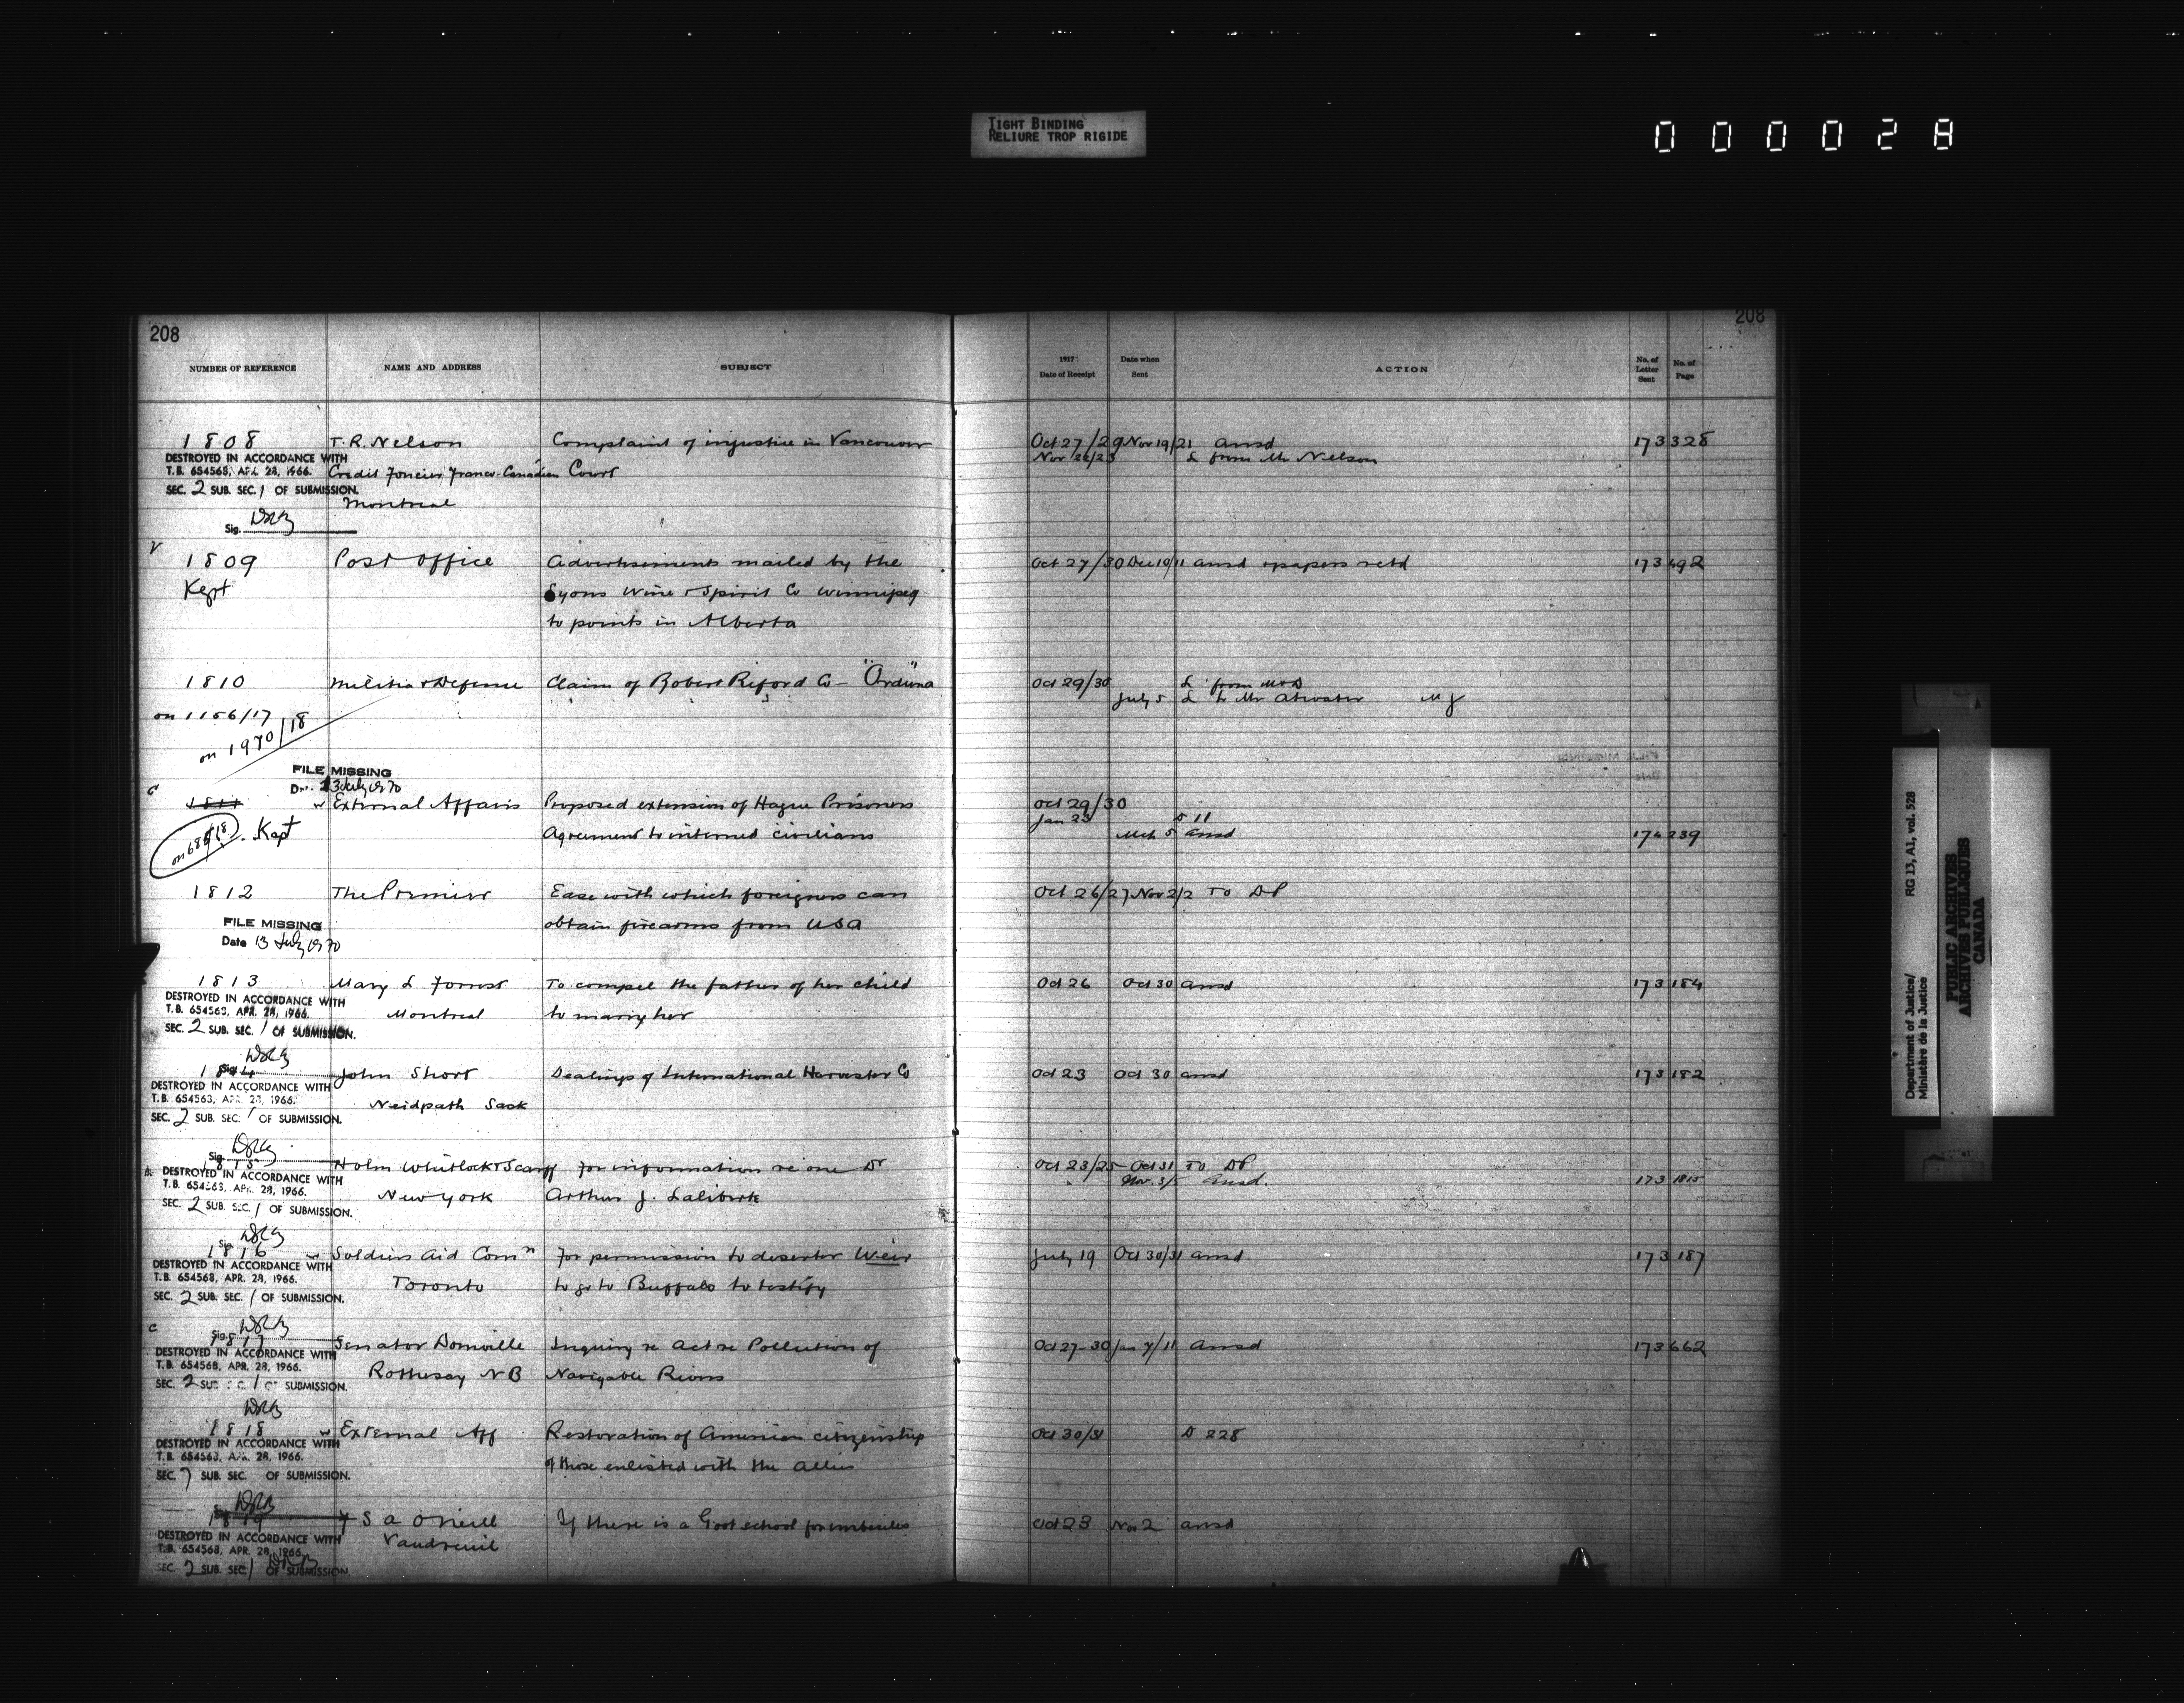 TIGHT BINDING
RELIURE TROP RIGIDE
000028
208
208
NUMBER OF REFERENCE NAME AND ADDRESS SUBJECT 1917 Date of Receipt Date when Sent ACTION No. of Letter Sent No. of Page
1808 T. R. Nelson Complaint of injustice in Vancouver Oct 27/29 Nov 19/21 ansd 173 328
DESTROYED IN ACCORDANCE WITH
Nov 22/23 L from Mr Nelson
T.B. 654563, APR. 28, 1966. Credit Foncier Franco-Canadien Court
SEC. 2 SUB. SEC. 1 OF SUBMISSION.
Montreal
Sig.
1809 Post Office Advertisements mailed by the Oct 27/30 Dec 10/11 ansd & papers retd 173 492
Kept Lyons Wine & Spirit Co Winnipeg
to points in Alberta
1810 Militia & Defense Claim of Robert Reford Co - "Orduna" Oct 29/30 L from M & D
July 5 L to Mr Atwater MJ
on 1156/17
on 1970/18
FILE MISSING
Date 13 July 1970
1811 External Affairs Proposed extension of Hague Prisoners Oct 29/30
Jan 23 D 11
Kept Agreement to interned civilians Mch 5 ansd 174 239
1812 The Premier Ease with which foreigners can Oct 26/27 Nov 2/2 To DP
obtain firearms from USA
FILE MISSING
Date 13 July 1970
1813 Mary L Forrest To compel the father of her child Oct 26 Oct 30 ansd 173 184
DESTROYED IN ACCORDANCE WITH
T.B. 654563, APR. 28, 1966. Montreal to marry her
SEC. 2 SUB. SEC. 1 OF SUBMISSION.
Sig.
1814 John Short Dealings of International Harvester Co Oct 23 Oct 30 ansd 173 182
DESTROYED IN ACCORDANCE WITH
T.B. 654563, APR. 28, 1966. Neidpath Sask
SEC. 2 SUB. SEC. 1 OF SUBMISSION.
Sig.
1815 Holm Whitlock & Scarff For information re one Dr Oct 23/25 Oct 31 To DP
DESTROYED IN ACCORDANCE WITH
Nov. 3/5 ansd. 173
T.B. 654563, APR. 28, 1966. New York Arthur J. Laliberte
SEC. 2 SUB. SEC. 1 OF SUBMISSION.
Sig.
1816 Soldiers Aid Comn For permission to deserter Weir July 19 Oct 30/31 ansd 173 187
DESTROYED IN ACCORDANCE WITH
T.B. 654568, APR. 28, 1966. Toronto to go to Buffalo to testify
SEC. 2 SUB. SEC. 1 OF SUBMISSION.
Sig.
1817 Senator Domville Inquiry re act re Pollution of Oct 27-30 Jan 7/11 ansd 173 662
DESTROYED IN ACCORDANCE WITH
T.B. 654568, APR. 28, 1966. Rothesay NB Navigable Rivers
SEC. 2 SUB. SEC. 1 OF SUBMISSION.
1818 External Aff Restoration of American citizenship Oct 30/31 D 228
DESTROYED IN ACCORDANCE WITH
T.B. 654563, APR. 28, 1966.
of those enlisted with the allies
SEC. 7 SUB. SEC. OF SUBMISSION.
1819 S a Oneill If there is a Govt school for imbeciles Oct 23 Nov 2 ansd
DESTROYED IN ACCORDANCE WITH
Vaudreuil
T.B. 654568, APR. 28, 1966.
SEC. 2 SUB. SEC. 1 OF SUBMISSION.
Department of Justice/ RG 13, A1, vol. 528
Ministère de la Justice
PUBLIC ARCHIVES
ARCHIVES PUBLIQUES
CANADA